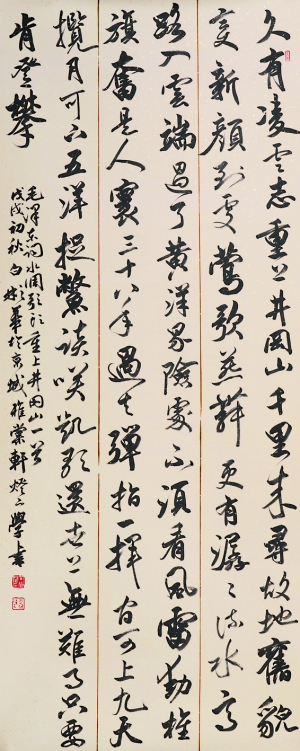 久有凌云志重上井冈山千里来寻故地旧貌
变新颜到处莺歌燕舞更有潺潺流水高
路入云端过了黄洋界险处不须看风雷动旌
旗奋是人寰三十八年过去弹指一挥间可上九天
揽月可下五洋捉鳖谈笑凯歌还世上无难事只要
肯登攀
毛泽东词水调歌头重上井冈山一首
戊戌初秋白彬华于京城雅棠轩灯下学书